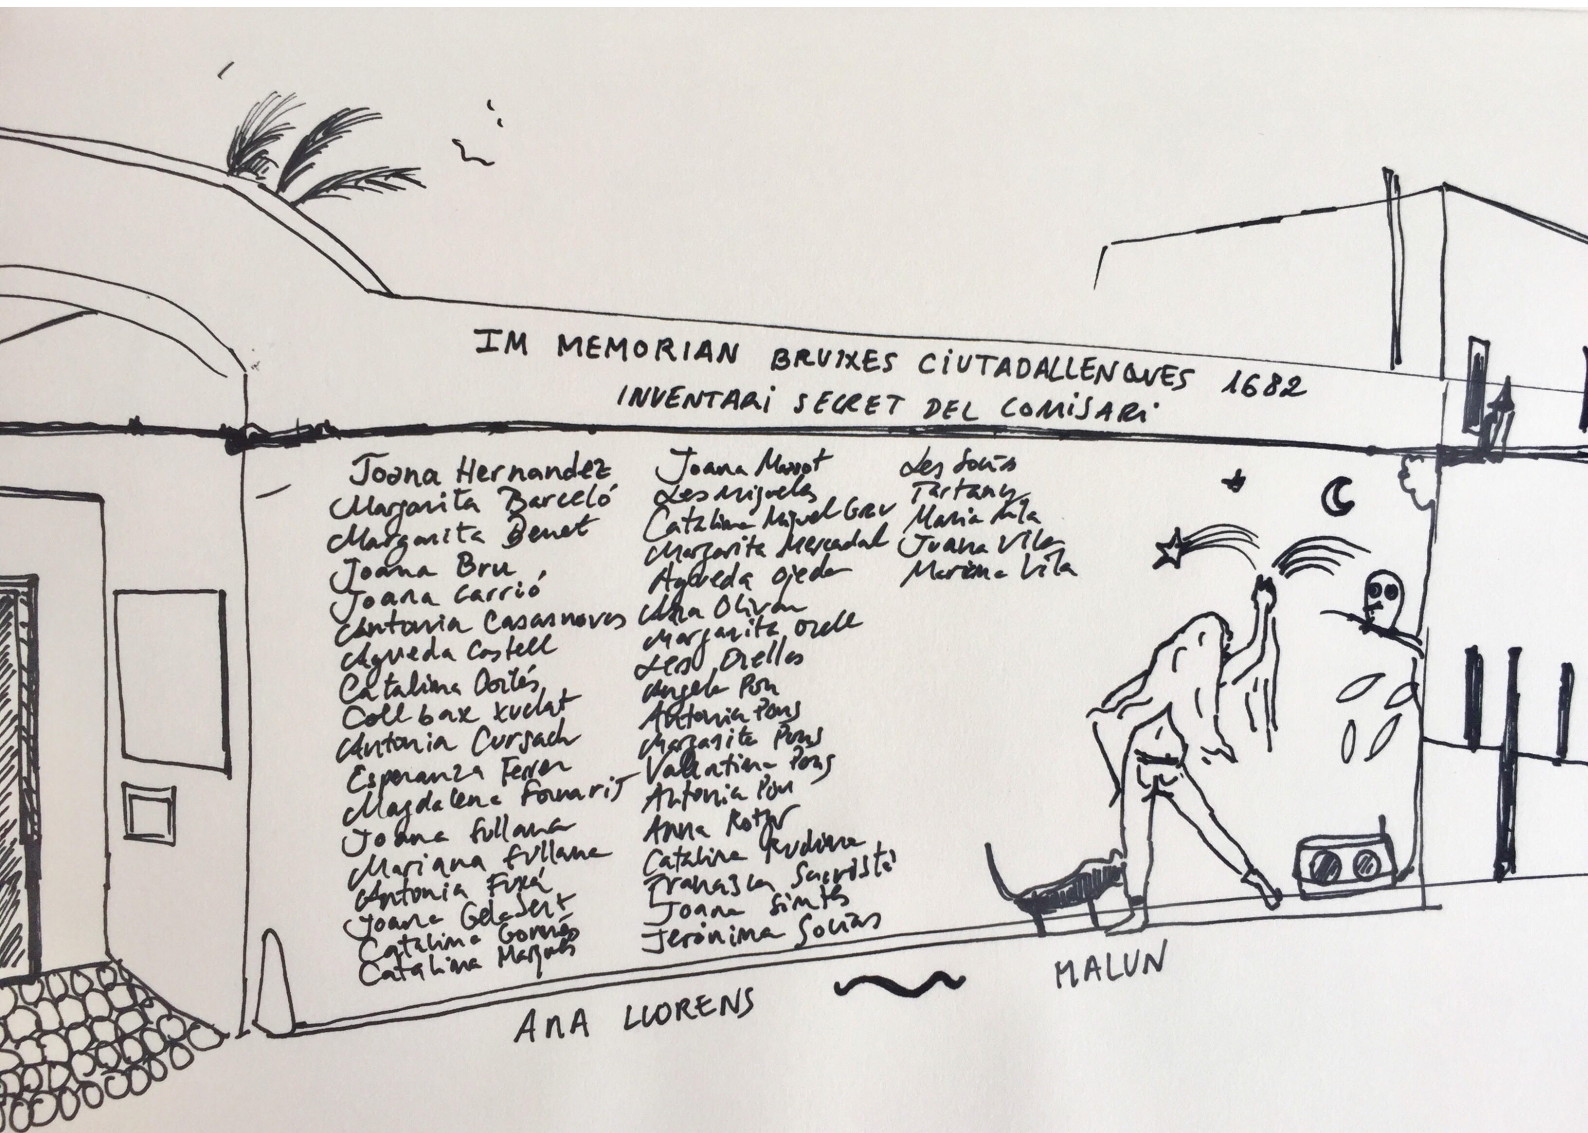 IM MEMORIAN BRUIXES CIUTADALLENQUES 1682
INVENTARI SECRET DEL COMISARI
Joana Hernandez
Margarita Barceló
Margarita Benet
Joana Bru
Joana Carrió
Antonia Casasnoves
Agueda Castell
Catalina
Coll bax
Antonia Cursach
Esperanza Ferrer
Magdalena
Joana Fullana
Mariana Fullana
Antonia Fuxá
Joana Gelasert
Catalina Gornés
Catalina Marqués
Joana
Les Migueles
Catalina Miquel Grau
Margarita Mercadal
Agueda Ojeda
Ana Olivar
Margarita Orell
Les Orelles
Angela Pon
Antonia Pons
Margarita Pons
Valentina Pons
Antonia Pou
Anna Rotger
Catalina
Sacristá
Joana
Jerónima Socias
Les Socis
Tartany
Maria
Juana Vila
Vila
ANA LLORENS
MALUN